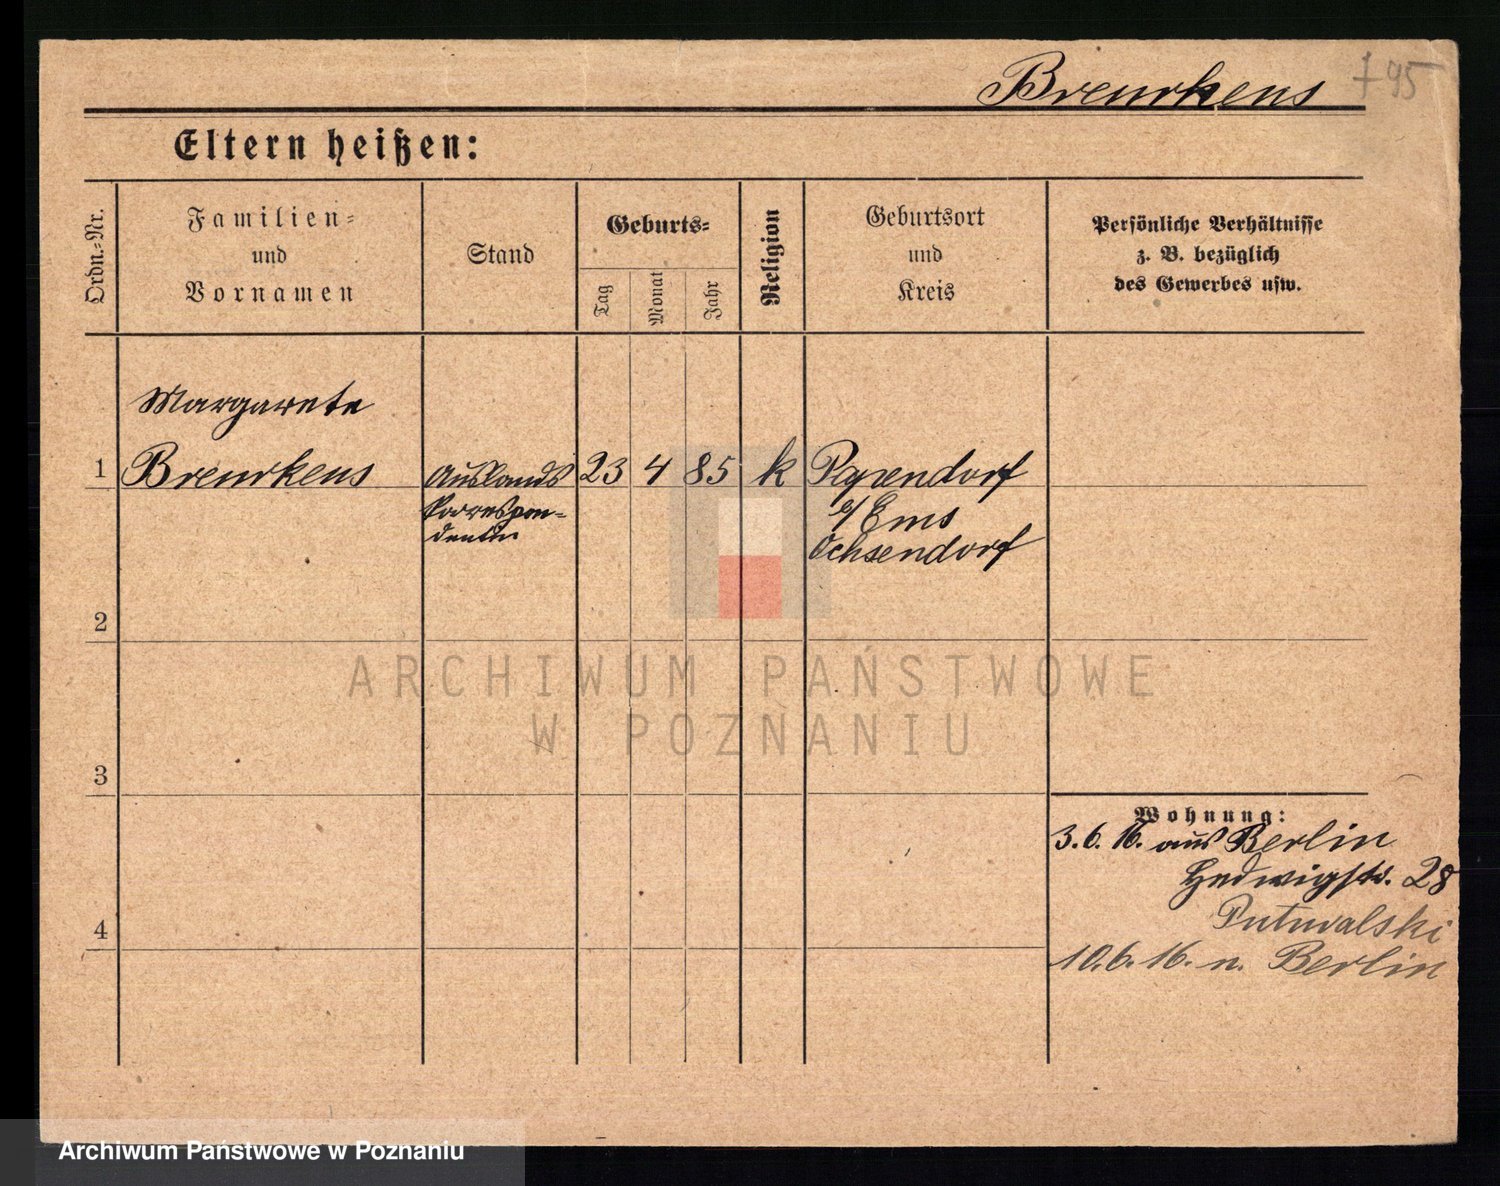 Breurkens 795
Eltern heißen:
Ordn.=Nr.
Familien=
und
Vornamen
Stand
Geburts=
Tag
Monat
Jahr
Religion
Geburtsort
und
Kreis
Persönliche Verhältnisse
z. B. bezüglich
des Gewerbes usw.
Margarete
1 Breurkens Auslands 23 4 85 k
Korrespon=
dentin
Ems
Ochsendorf
2
3
4
Wohnung:
3.6.16. aus Berlin
Hedwigstr. 28
Putwalski
10.6.16. n. Berlin
ARCHIWUM PAŃSTWOWE
W POZNANIU
Archiwum Państwowe w Poznaniu